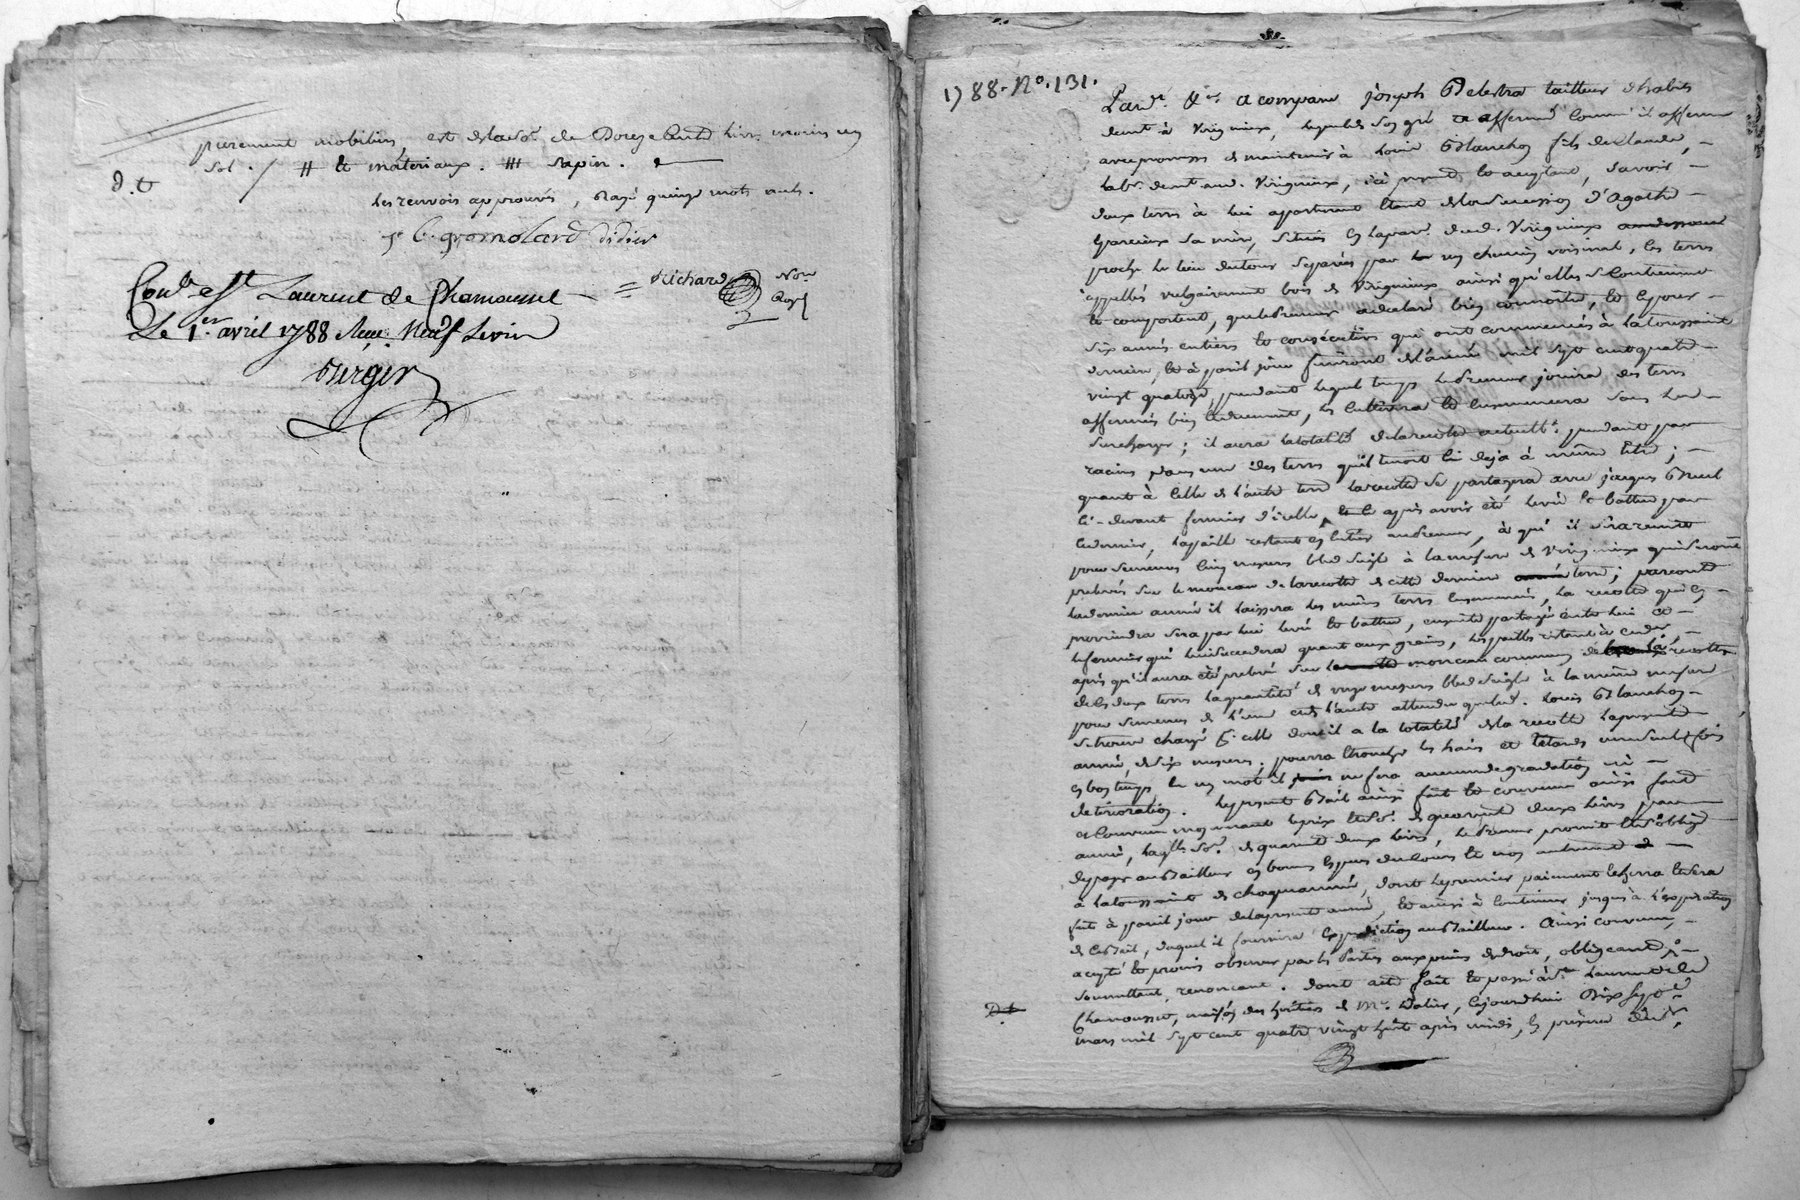 purement mobiliers, est de la so.e de Douze Cent livres moins un
sol . / # & matériaux . ## sapin .
d. t
Les renvois approuvés, Rayé quinze mots nuls.
C. gromolard didier
Richard Not.re Royl
Con.lé à S.t Laurent de Chamousset
Le 1.er avril 1788 Reçu Neuf livres
Berger
1788. N.o 131.
Pard.t &.a a comparu joseph Delestra tailleur d'habits
demt à Virigneux, lequel de son gré a affermé comme il afferme
avec promesse de maintenir à Louis Blanchon fils de Claude,
lab.r demt aud. Virigneux, ici present et acceptant, savoir
deux terres à lui appartenant étant de la succession d'Agathe
sa mère, situées en la par.e dud. Virigneux
proche le lieu separées par un chemin voisinal, les terres
appellés vulgairement bois de Virigneux ainsi qu'elles se Contiennent
et comportent, que le preneur a déclaré bien connoitre, et ce pour
six années entieres et consécutives qui ont commencées à la toussaint
derniere, et à pareil jour finiront de l'année mil sept cent quatre
vingt quatorze, pendant lequel temps le preneur jouira des terres
affermées bien et duement, les cultivera et ensemencera sans les
surcharger ; il aura la totalité de la recolte actuelle pendante par
racines dans une des terres qu'il tenoit deja à même titre ;
quant à Celle de l'autre terre la recolte se partagera avec jacques Bruel
ci-devant fermier d'icelle, après avoir été levée et battue par
ce dernier, la paille restant en entier au preneur, à qui il sera remis
pour semences cinq mesures bled seigle à la mesure de Virigneux qui seront
prelevés sur le monceau de la recolte de cette derniere terre ; par contre
la derniere année il laissera les mêmes terres ensemencées, la recolte qui en
proviendra sera par lui levée et battue, ensuite partagée entre lui et
le fermier qui lui succedera quant aux grains, les pailles restant à ce dernier,
après qu'il aura été prelevé sur le monceau commun de la recolte
de ces deux terres la quantité de onze mesures bled seigle à la même mesure
pour semences de l'une et de l'autre attendu que led. Louis Blanchon
se trouve chargé p.r celle dont il a la totalité de la recolte la presente
année, de six mesures ; pourra étroncher les haies et tetards une seule fois
en bon temps & en un mot il ne fera aucune degradation ni
déterioration. Le present Bail ainsi fait et convenu aussi fait
et convenu moyennant le prix et so.e de quarante deux livres par
année, laq.lle so.e de quarante deux livres, le preneur promet et s'oblige
de payer au Bailleur en bonnes espèces de cours et non autrement
à la toussaint de chaque année, dont le premier paiement se ferra et sera
fait à pareil jour de la presente année, et ainsi à continuer jusques à l'expiration
de ce Bail, duquel il fournira expédiction au Bailleur. Ainsi convenu,
accepté et promis observer par les parties aux peines de droit, obligeant,
soumettant, renonçant. Dont acte fait et passé à S.t Laurent de
Chamousset, maison des héritiers de M.r Dalin, cejourdhui Dix sept
mars mil sept cent quatre vingt huit après midi, en présence de
D. t.